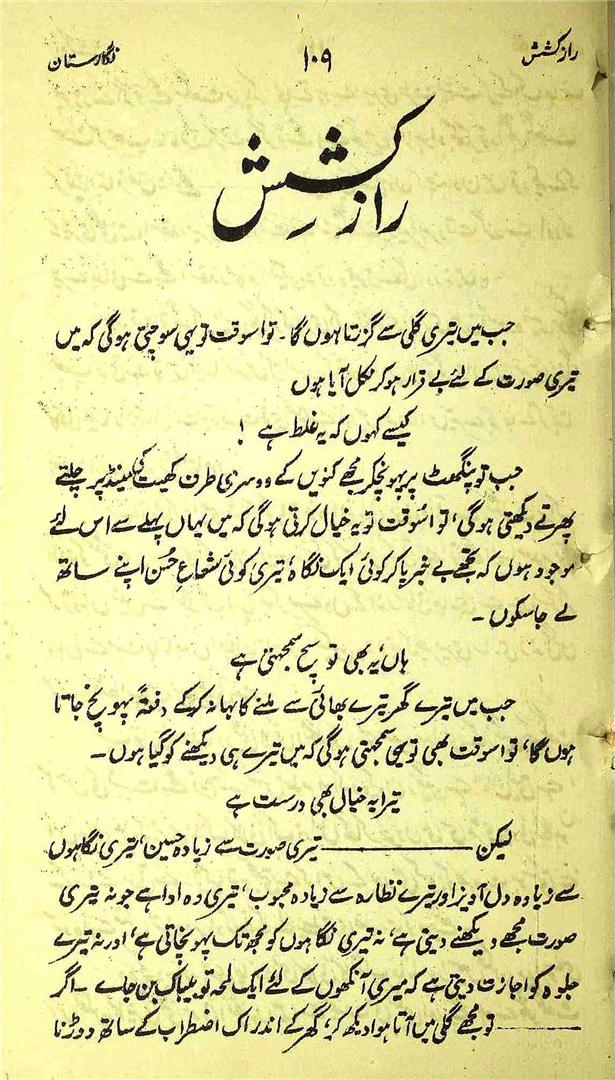 راز کشش ۱۰۹ نگارستان
راز کشش
جب میں تیری گلی سے گزرتا ہوں گا۔ تو اسوقت تو یہی سوچتی ہوگی کہ میں
تیری صورت کے لئے بے قرار ہو کر نکل آیا ہوں
کیسے کہوں کہ یہ غلط ہے !
جب تو پنگھٹ پر پہونچکر مجھے کنویں کے دوسری طرف کھیت کی مینڈ پر چلتے
پھرتے دیکھتی ہوگی، تو اسوقت تو یہ خیال کرتی ہوگی کہ میں یہاں پہلے سے اس لئے
موجود ہوں کہ تجھے بے خبر پا کر کوئی ایک نگاہ، تیری کوئی شعاعِ حُسن اپنے ساتھ
لے جا سکوں۔
ہاں، یہ بھی تو سچ سمجھتی ہے
جب میں تیرے گھر تیرے بھائی سے ملنے کا بہانہ کر کے دفعۃً پہونچ جاتا
ہوں گا، تو اسوقت بھی تو یہی سمجھتی ہوگی کہ میں تیرے ہی دیکھنے کو گیا ہوں۔
تیرا یہ خیال بھی درست ہے
لیکن ـــــــــ تیری صورت سے زیادہ حسین، تیری نگاہوں
سے زیادہ دل آویز اور تیرے نظارہ سے زیادہ محبوب، تیری وہ ادا ہے جو نہ تیری
صورت مجھے دیکھنے دیتی ہے، نہ تیری نگاہوں کو مجھ تک پہونچاتی ہے، اور نہ تیرے
جلوہ کو اجازت دیتی ہے کہ میری آنکھوں کے لئے ایک لمحہ تو بیباک بن جاے ۔ اگر
ـــــــــ تو مجھے گلی میں آتا ہوا دیکھ کر، گھر کے اندر اک اضطراب کے ساتھ دوڑنا